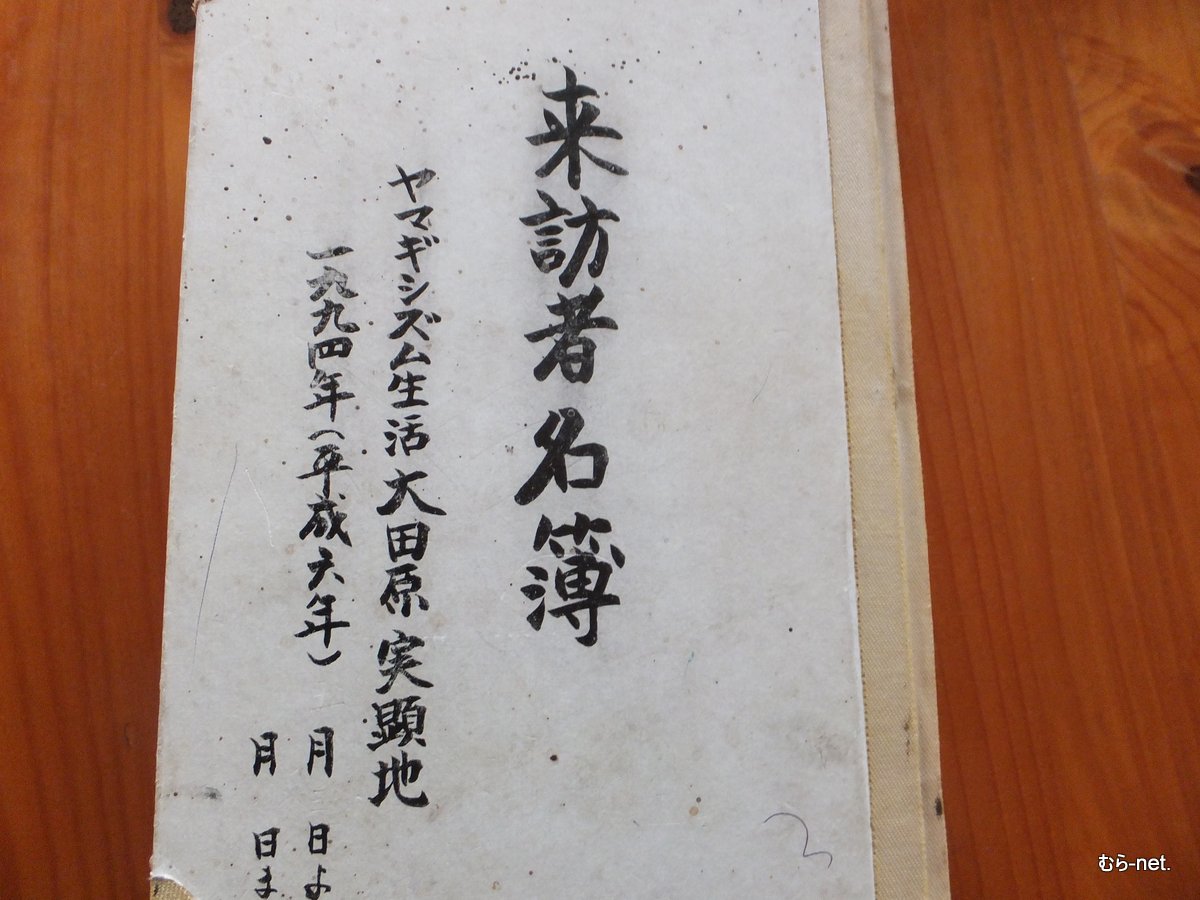 来訪者名簿
ヤマギシズム生活 大田原 実顕地
一九九四年(平成六年) 月 日よ
月 日ま
むら-net.